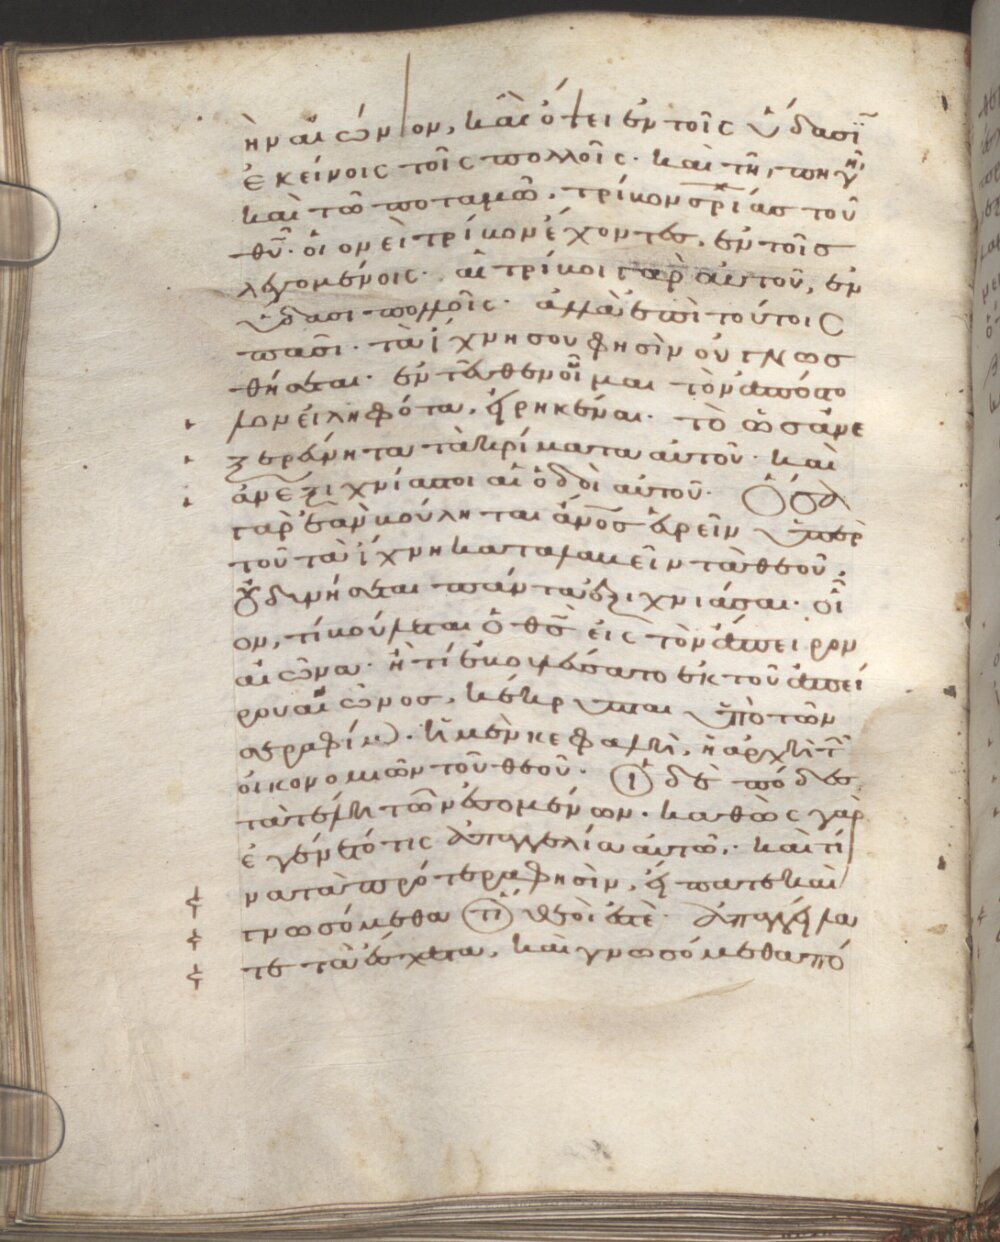 ὴν αἰώνιον, καὶ ὅτι ἐν τοῖς ὕδασϊ
ἐκείνοις τοῖς πολλοῖς. καὶ τῆ πηγῆ
καὶ τῶ ποταμῶ. τρίβον σρίας τοῦ
θυ. οἱονεὶ τρίβον ἔχοντες. ἐν τοῖς
λεγομένοις. αἱ τρίβοι γὰρ αὐτοῦ, ἐν
ὕδασι πολλοῖς. ἀλλὰ ἐπὶ τούτοις
πᾶσι. τὰ ἴχνη σου φησὶν οὐ γνωσ
θήσεται. ἐντεῦθεν οἶμαι τὸν ἀπόστο
λον εἰληφότα, εἰρηκέναι. τὸ ὡς ἀνε
ξερεύνητα τὰ κρίματα αὐτοῦ. καὶ
ἀνεξιχνίαστοι αἱ ὁδοὶ αὐτοῦ. ὅσα
γὰρ ἐὰν βούληται ἄνος εὑρεῖν ὑπὲρ
τοῦ τὰ ἴχνη καταλαβεῖν τὰ θεοῦ,
οὐ δυνήσεται πάντα ἐξιχνιάσαι. οἷ
ον, τί βούλεται ὁ θς εἰς τὸν ἄπειρον
αἰῶνα. ἢ τί ἐβουλεύσατο ἐκ τοῦ ἀπεί
ρου αἰῶνος, κέκρυπται ὑπὸ τῶν
σεραφίμ. ἡ μὲν κεφαλὴ, ἡ ἀρχὴ τῶν
οἰκονομιῶν τοῦ θεοῦ. οἱ δὲ πόδες
τὰ τέλη τῶν ἐσομένων. καθὼς γὰρ
ἐγένετό τις ἐπαγγελία αὐτῶ. καὶ τί
να τὰ πρότερα φησὶν, εἴπατε καὶ
γνωσόμεθα ὅτι θεοί ἐστέ. ἐπαγγείλα
τε τὰ ἔσχατα, καὶ γνωσόμεθα πό